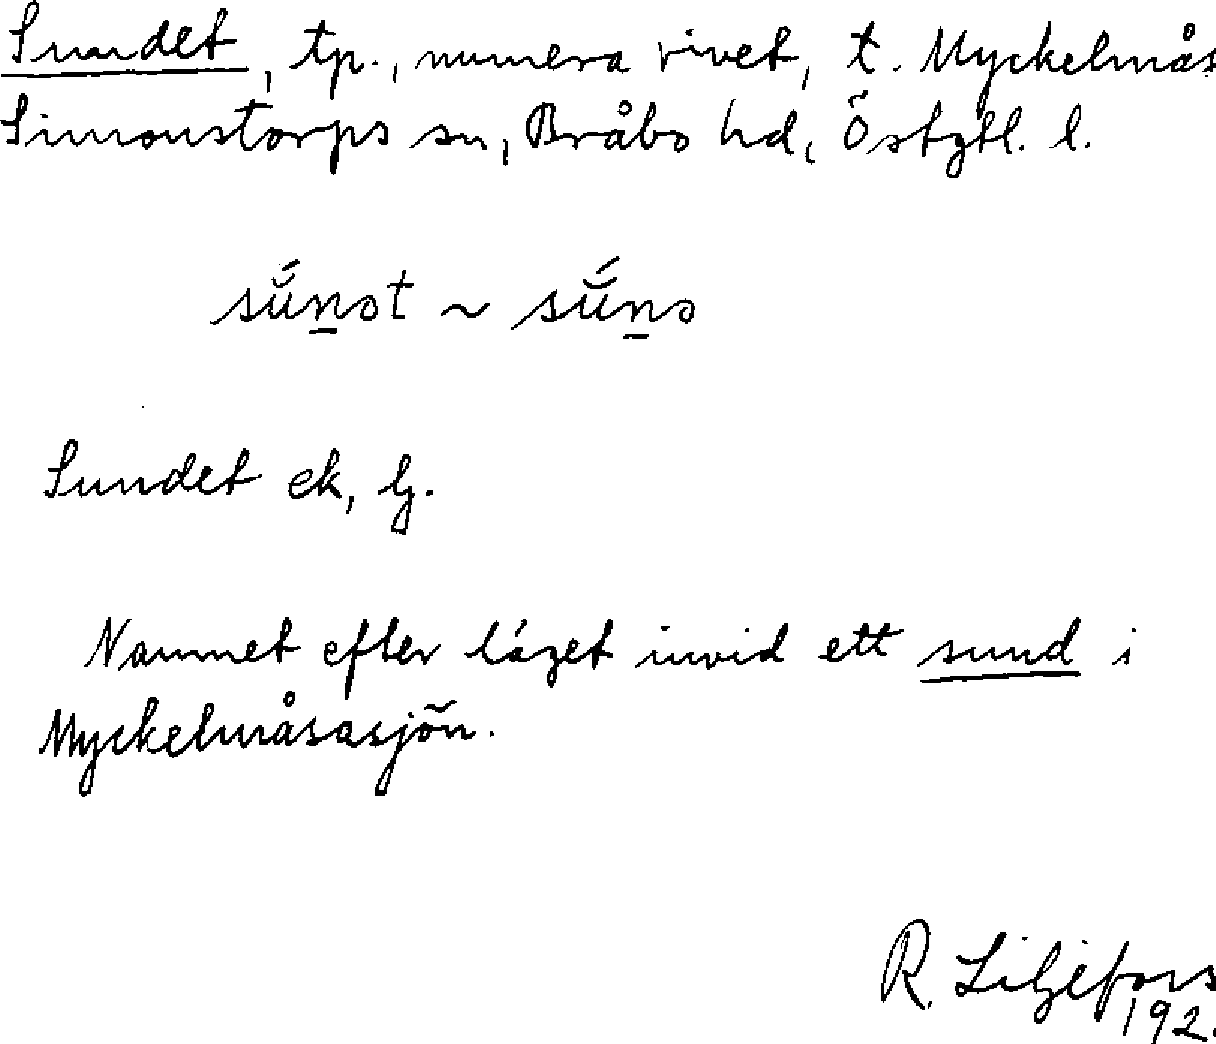 Sundet, tp., numera rivet, t. Myckelmås
Simonstorps sn, Bråbo hd, Östgtl. l.
sŭ́n̠ət ~ sŭ́n̠ə
Sundet ek, lj.
Namnet efter läget invid ett sund i
Myckelmåsasjön.
R. Liljefors
192.